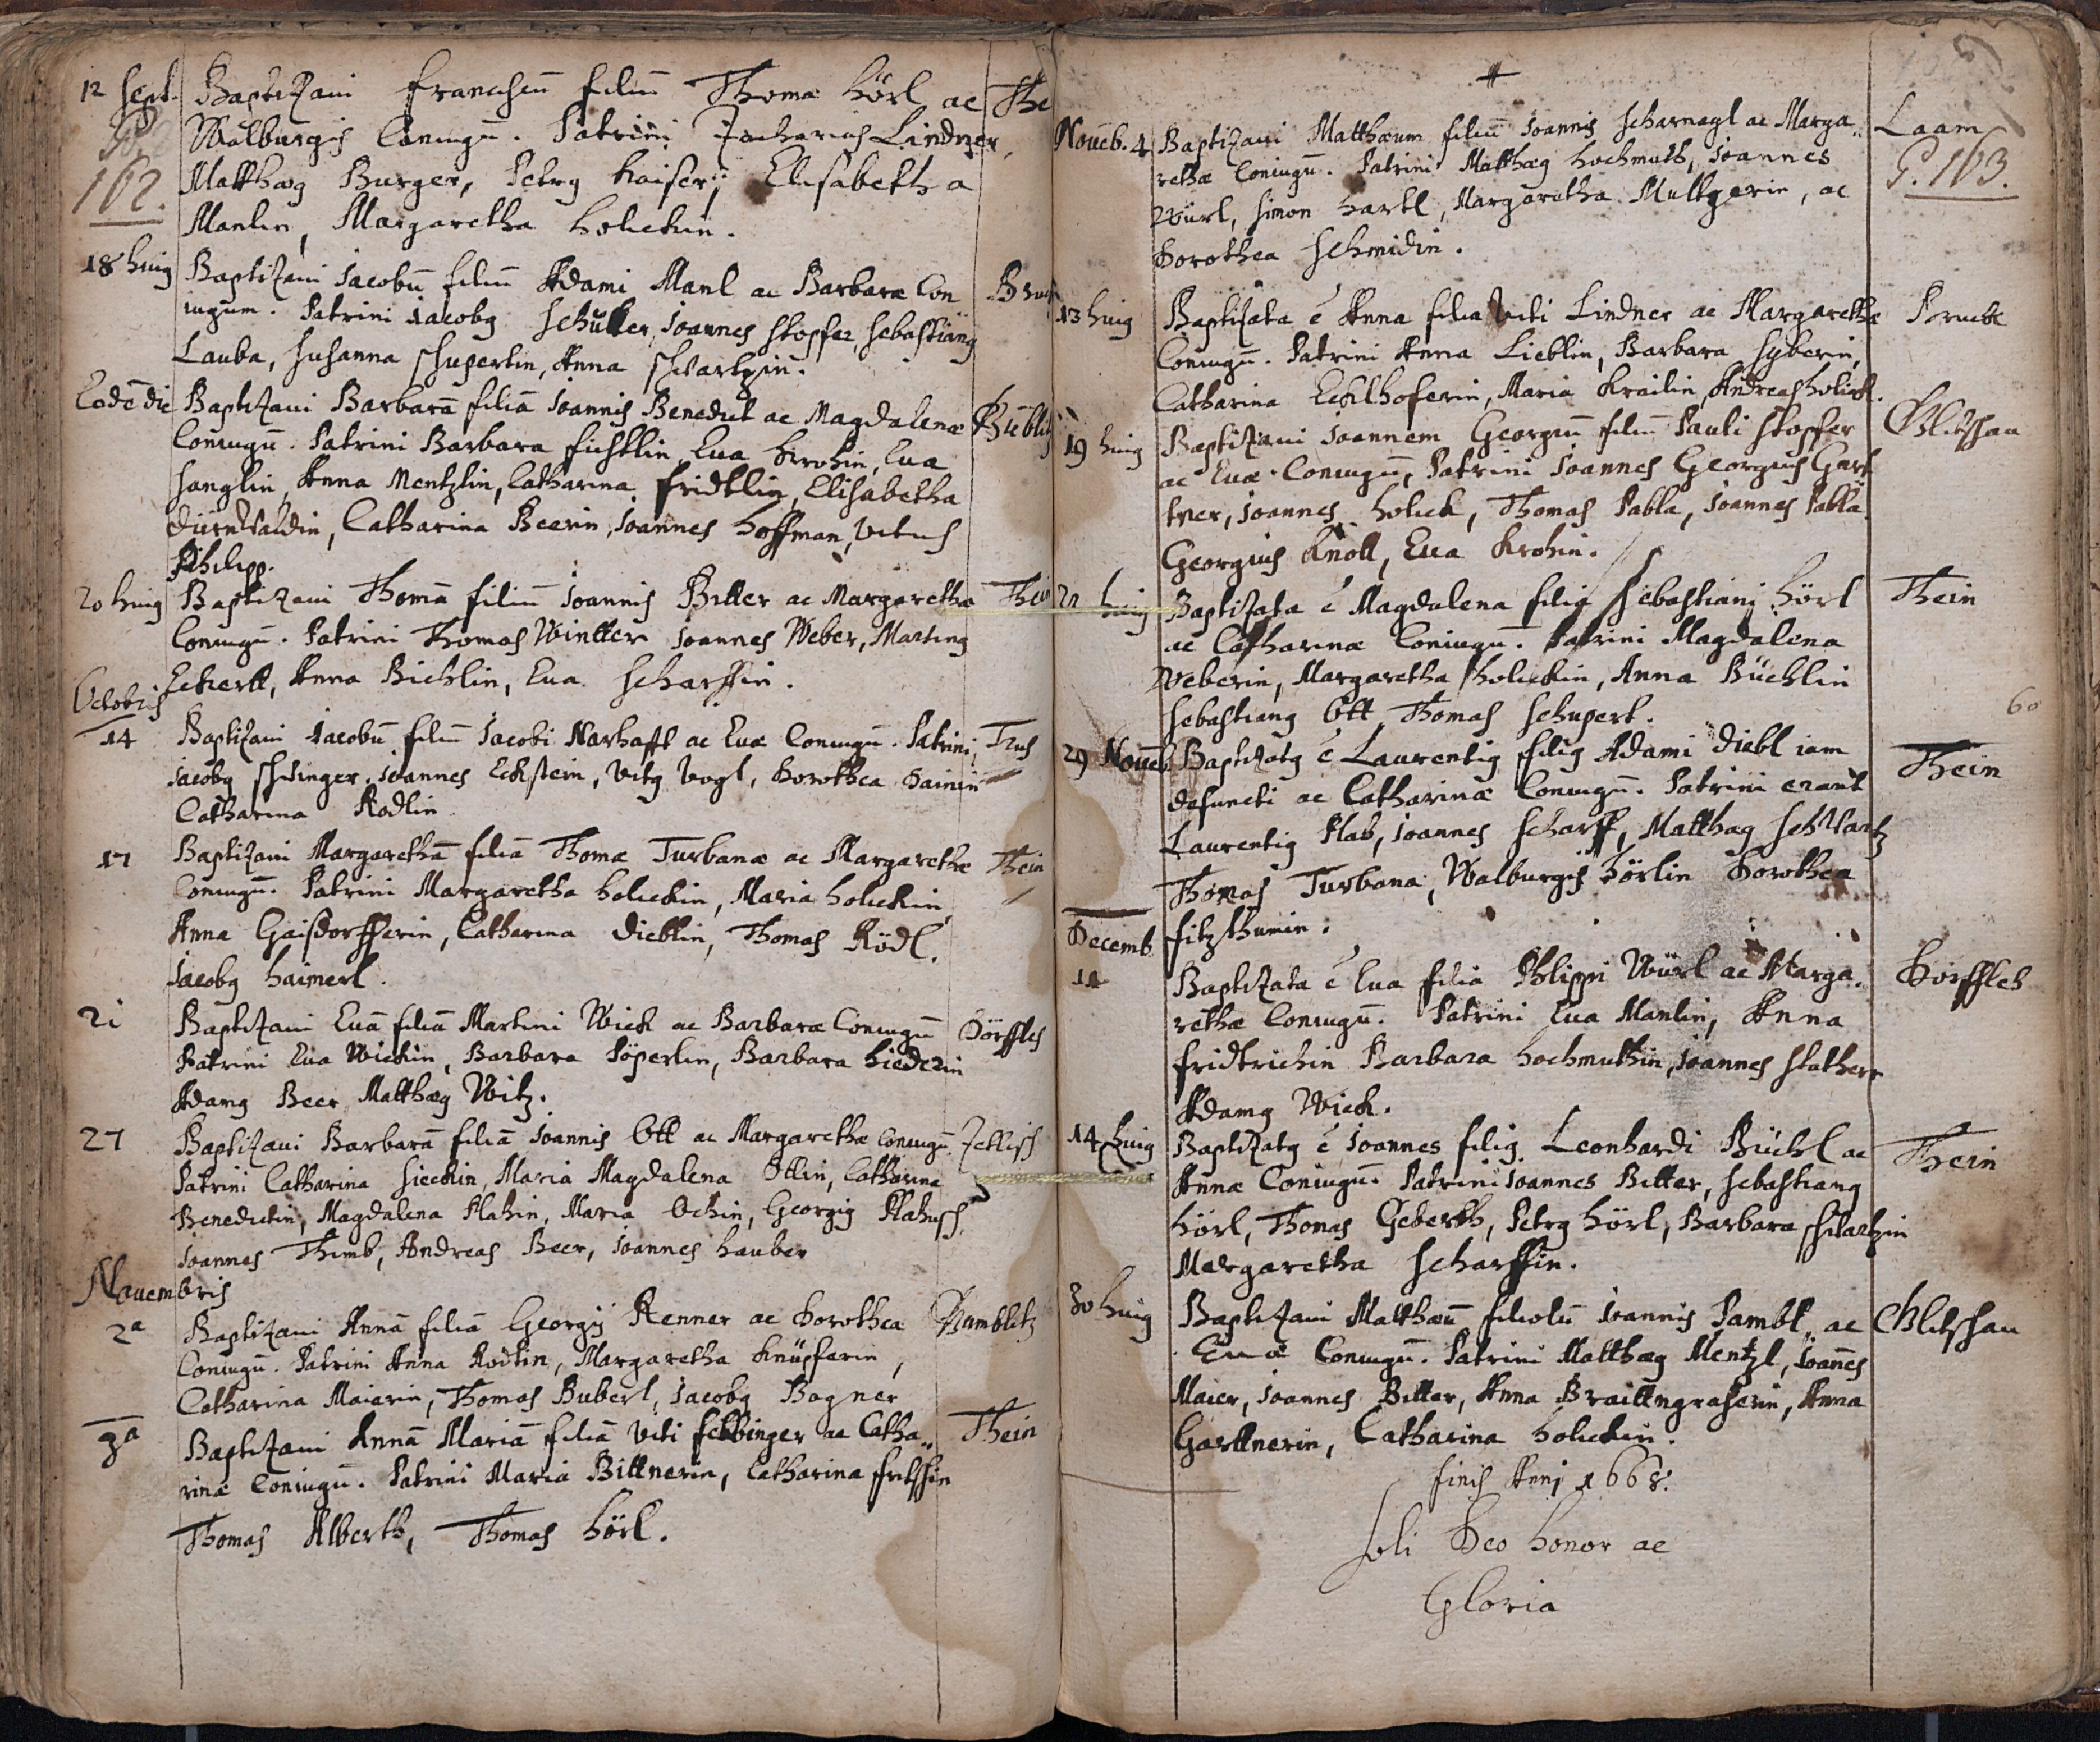 12 Sept. Baptizavi Franciscū filiū Thomæ Hörl ac The
Walburgis Coniugū. Patrini Zacharias Lindner,
162. Matthæg Burger, Petrg Kaiser, Elisabetha
Manlin, Margaretha Holickin.
18 huig Baptizavi Jacobū filiū Adami Manl ac Barbaræ Con
iugum. Patrini Jacobg Schuller, Joannes Stopfer, Sebastiang
Lauba, Susanna Schuperlin, Anna Schwartzin.
Eodē die Baptizavi Barbarā filiā Joannis Benedict ac Magdalenæ
Coniugū. Patrini Barbara Fichtlin, Eua Krohin, Eua
Sanglin, Anna Mentzlin, Catharina Fridtlin, Elisabetha
Dürnwaldin, Catharina Beerin, Joannes Hoffman, Vitus
Philipp.
20 huig Baptizavi Thomā filiū Joannis Bitter ac Margarethæ Thein
Coniugū. Patrini Thomas Wintter Joannes Weber, Marting
Eckertt, Anna Bichlin, Eua Scharffin.
Octobris
14 Baptizavi Jacobū filiū Jacobi Narhafft ac Euæ Coniugū. Patrini
Jacobg Schlinger, Joannes Eckstein, Vitg Vogl, Dorothea Dainin
Catharina Rodlin
17 Baptizavi Margarethā filiā Thomæ Turbanæ ac Margarethæ Thein
Coniugū. Patrini Margaretha Holickin, Maria Holickin,
Anna Gaisdorfferin, Catharina Dieblin, Thomas Rödl.
Jacobg Haimerl.
21 Baptizavi Euā filiā Martini Wick ac Barbaræ Coniugū Dörffles
Patrini Eua Wickin, Barbara Pöperlin, Barbara Hiederin
Adamg Beer Matthæg Witz.
27 Baptizavi Barbarā filiā Joannis Ott ac Margarethæ Coniugū. Zettlisch
Patrini Catharina Sieckin, Maria Magdalena Ottin, Catharina
Benedictin, Magdalena Plahin, Maria Ochin, Georgig Plahusch.
Joannes Thimb, Andreas Beer, Joannes Hauber
Nouembris
2a Baptizavi Annā filiā Georgij Renner ac Dorothea Ramblitz
Coniugū. Patrini Anna Rodlin, Margaretha Knüpferin,
Catharina Maiarin, Thomas Buberl, Jacobg Bogner
3a Baptizavi Annā Mariā filiā Viti Fickbinger ac Catha„ Thein
rinæ Coniugū. Patrini Maria Bittnerin, Catharina Fritschin
Thomas Alberth, Thomas Hörl.
Nouēb. 4 Baptizavi Matthæum filiū Joannis Scharnagl ac Marga„ Laam
rethæ Coniugū. Patrini Matthæg Hochmuth, Joannes P. 163.
Würl, Simon Hartl, Margaretha Multgerin, ac
Dorothea Schmidin.
13 huig Baptizata ē Anna filia Viti Lindner ac Margarethæ
Coniugū. Patrini Anna Lieblin, Barbara Syberin,
Catharina Ecklhoferin, Maria Krailin, Andreas Holick.
19 huig Baptizavi Joannem Georgiū filiū Pauli Stopfer Glitschau
ac Euæ Coniugū, Patrini Joannes Georgius Gart
tner, Joannes Holick, Thomas Pabla, Joannes Pabla
Georgius Knoll, Eua Krohin.
huig Baptizata ē Magdalena filia Sebastiani Hörl Thein
ac Catharinæ Coniugū. Patrini Magdalena
Weberin, Margaretha Holickin, Anna Büchlin
Sebastiang Ott Thomas Schupert.
60
29 Nouēb. Baptizatg ē Laurentig filig Adami Diebl iam Thein
defuncti ac Catharinæ Coniugū. Patrini erant
Laurentig Plab, Joannes Scharff, Matthæg Schwartz
Thomas Turbana, Walburgis Hörlin Dorothea
Fitzthumin.
Decemb
11 Baptizata ē Eua filia Philippi Würl ac Marga„ Dörffles
rethæ Coniugū. Patrini Eua Manlin, Anna
Fridtrichin Barbara Hochmuthin, Joannes Stather
Adamg Wick.
14 huig Baptizatg ē Joannes filig Leonhardi Büchl ac Thein
Annæ Coniugū. Patrini Joannes Bitter, Sebastiang
Hörl, Thomas Geberth, Petrg Hörl, Barbara Schwartzin
Margaretha Scharffin.
30 huig Baptizavi Matthæū filiolū Joannis Pambl„ ac Glitschau
Euæ Coniugū. Patrini Matthæg Mentzl, Joāēs
Maier, Joannes Bitter, Anna Braittngraserin, Anna
Garttnerin, Catharina Holickin.
Finis Anni 1668.
Soli Deo Honor ac
Gloria